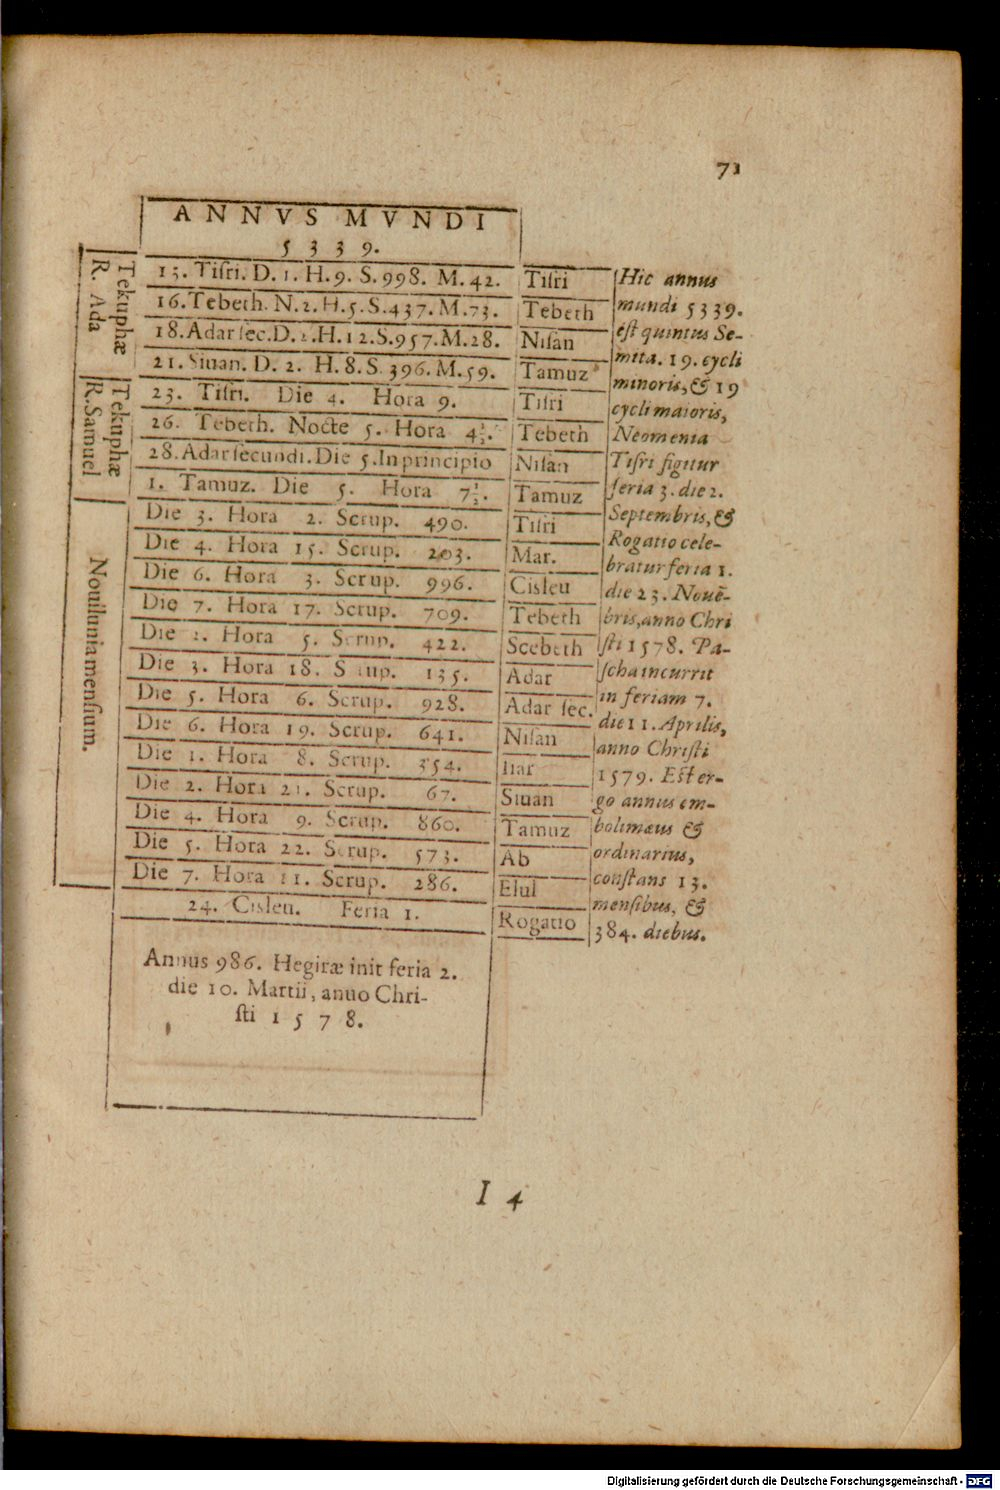 71
ANNVS MVNDI
5339.
Tekuphæ
R. Ada
13. Tiſri. D. 1. H. 9. S. 998. M. 42. Tiſri
16. Tebeth. N. 2. H. 5. S. 437. M. 73. Tebeth
18. Adar ſec. D. 2. H. 12. S. 957. M. 28. Niſan
21. Siuan. D. 2. H. 8. S. 396. M. 59. Tamuz
Tekuphæ
R. Samuel
23. Tiſri. Die 4. Hora 9. Tiſri
26. Tebeth. Nocte 5. Hora 4½. Tebeth
28. Adar ſecundi. Die 5. In principio Niſan
1. Tamuz. Die 5. Hora 7½. Tamuz
Nouilunia menſium.
Die 3. Hora 2. Scrup. 490. Tiſri
Die 4. Hora 15. Scrup. 203. Mar.
Die 6. Hora 3. Scrup. 996. Ciſleu
Die 7. Hora 17. Scrup. 709. Tebeth
Die 2. Hora 5. Scrup. 422. Scebeth
Die 3. Hora 18. Scrup. 135. Adar
Die 5. Hora 6. Scrup. 928. Adar ſec.
Die 6. Hora 19. Scrup. 641. Niſan
Die 1. Hora 8. Scrup. 354. Iiar
Die 2. Hora 21. Scrup. 67. Siuan
Die 4. Hora 9. Scrup. 860. Tamuz
Die 5. Hora 22. Scrup. 573. Ab
Die 7. Hora 11. Scrup. 286. Elul
24. Ciſleu. Feria 1. Rogatio
Annus 986. Hegiræ init feria 2.
die 10. Martii, anno Chri-
ſti 1578.
Hic annus
mundi 5339.
eſt quintus Se-
mita. 19. cycli
minoris, & 19
cycli maioris,
Neomenia
Tiſri figitur
feria 3. die 2.
Septembris, &
Rogatio cele-
bratur feria 1.
die 23. Nouē-
bris, anno Chri
ſti 1578. Pa-
ſcha incurrit
in feriam 7.
die 11. Aprilis,
anno Chriſti
1579. Eſt er-
go annus em-
bolimæus &
ordinarius,
conſtans 13.
menſibus, &
384. diebus.
I 4
Digitalisierung gefördert durch die Deutsche Forschungsgemeinschaft - DFG